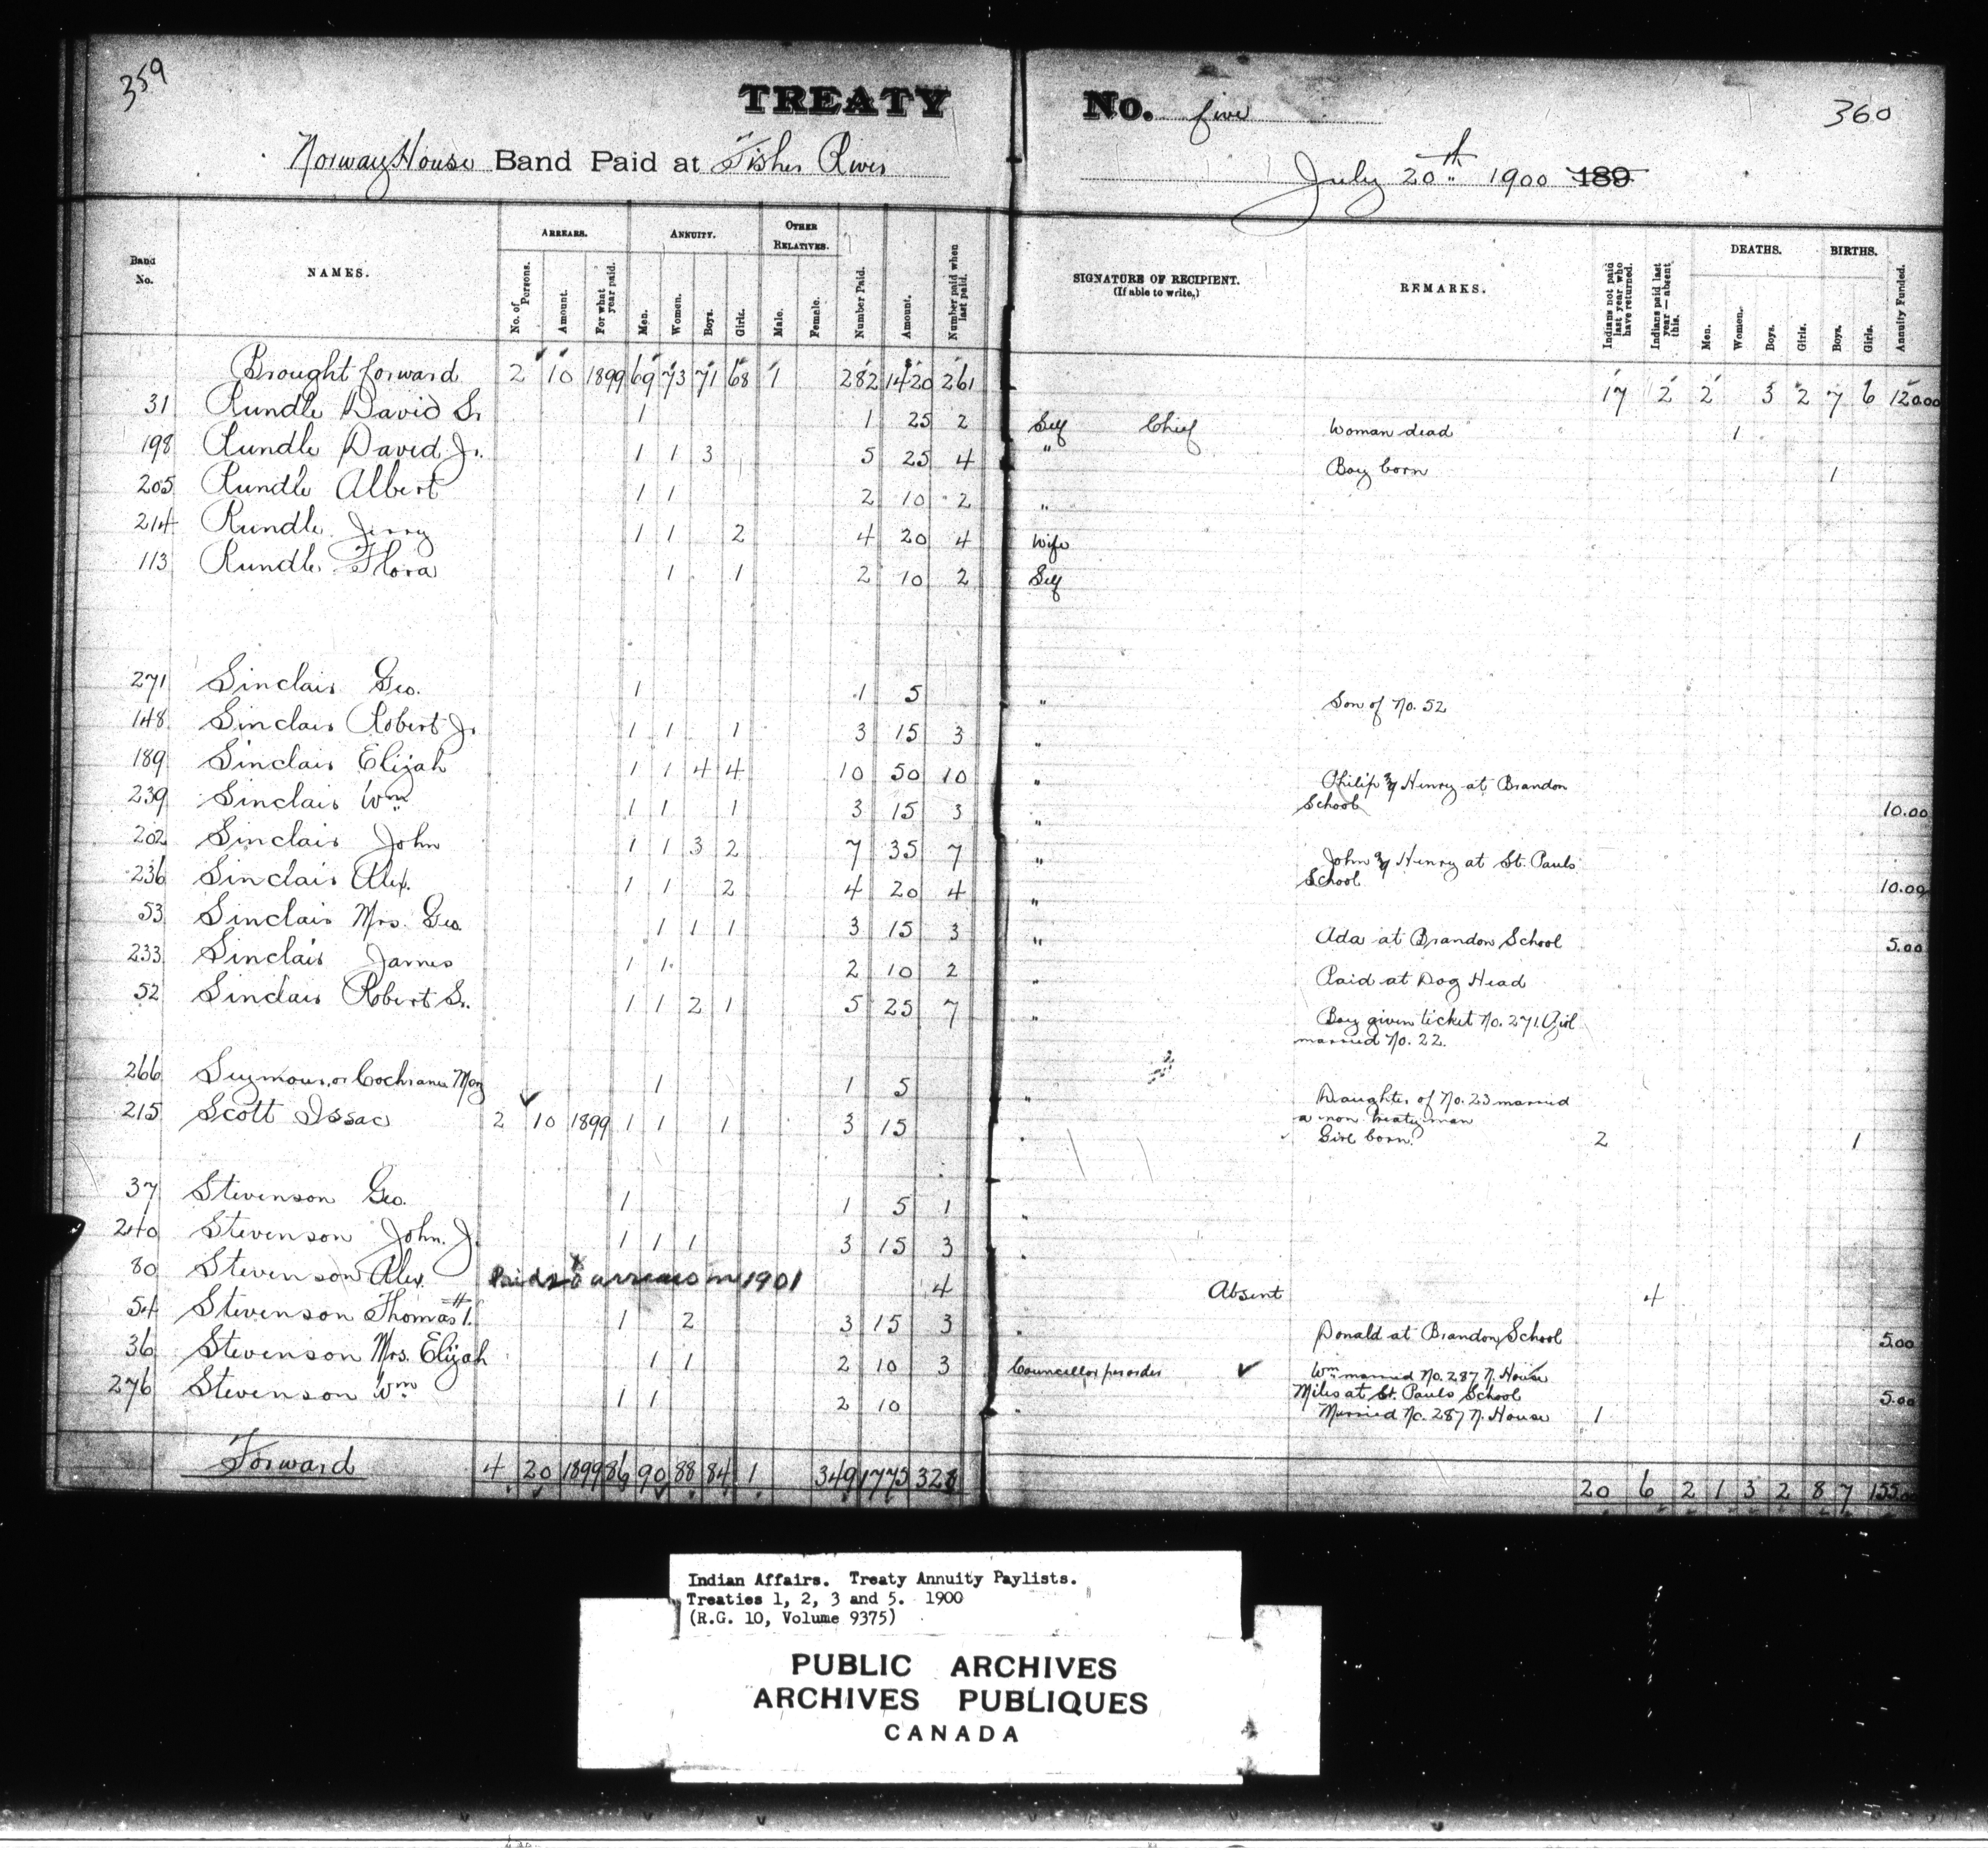 359
TREATY No. five
360
Norway House Band Paid at Fisher River
July 20th 1900 189
Band No.
NAMES.
ARREARS.
No. of Persons.
Amount.
For what year paid.
ANNUITY.
Men.
Women.
Boys.
Girls.
OTHER RELATIVES.
Male.
Female.
Number Paid.
Amount.
Number paid when last paid.
SIGNATURE OF RECIPIENT.
(If able to write.)
REMARKS.
Indians not paid last year who have returned.
Indians paid last year—absent this.
DEATHS.
Men.
Women.
Boys.
Girls.
BIRTHS.
Boys.
Girls.
Annuity Funded.
Brought forward 2 10 1899 69 73 71 68 1 282 $1420 261 17 2 2 3 2 7 6 120.00
31 Rundle David S. 1 1 25 2 Self Chief Woman dead 1
198 Rundle David J. 1 1 3 5 25 4 " Boy born 1
205 Rundle Albert 1 1 2 10 2 "
214 Rundle Jerry 1 1 2 4 20 4 Wife
113 Rundle Flora 1 1 2 10 2 Self
271 Sinclair Geo. 1 1 5 " Son of No. 52
148 Sinclair Robert J. 1 1 1 3 15 3 "
189 Sinclair Elijah 1 1 4 4 10 50 10 " Philip & Henry at Brandon
School 10.00
239 Sinclair Wm 1 1 1 3 15 3 "
202 Sinclair John 1 1 3 2 7 35 7 " John & Henry at St. Pauls
School 10.00
236 Sinclair Alex. 1 1 2 4 20 4 "
53 Sinclair Mrs. Geo. 1 1 1 3 15 3 " Ada at Brandon School 5.00
233 Sinclair James 1 1 2 10 2 " Paid at Dog Head
52 Sinclair Robert S. 1 1 2 1 5 25 7 " Boy given ticket No. 271. Girl
married No. 22.
266 Seymour or Cochrane Mary 1 1 5 " Daughter of No. 23 married
a non treaty man
215 Scott Issac 2 10 1899 1 1 1 3 15 " Girl born 2 1
37 Stevenson Geo. 1 1 5 1 "
240 Stevenson John. J. 1 1 1 3 15 3 "
80 Stevenson Alex. Paid arrears in 1901 4 Absent 4
54 Stevenson Thomas 1 2 3 15 3 " Donald at Brandon School 5.00
36 Stevenson Mrs. Elijah 1 1 2 10 3 Councellor per order Wm married No. 287 N. House
Miles at St. Pauls School 5.00
276 Stevenson Wm 1 1 2 10 " Married No. 287 N. House 1
Forward 4 20 1899 86 90 88 84 1 349 1775 328 20 6 2 1 3 2 8 7 155.00
Indian Affairs. Treaty Annuity Paylists.
Treaties 1, 2, 3 and 5. 1900
(R.G. 10, Volume 9375)
PUBLIC ARCHIVES
ARCHIVES PUBLIQUES
CANADA